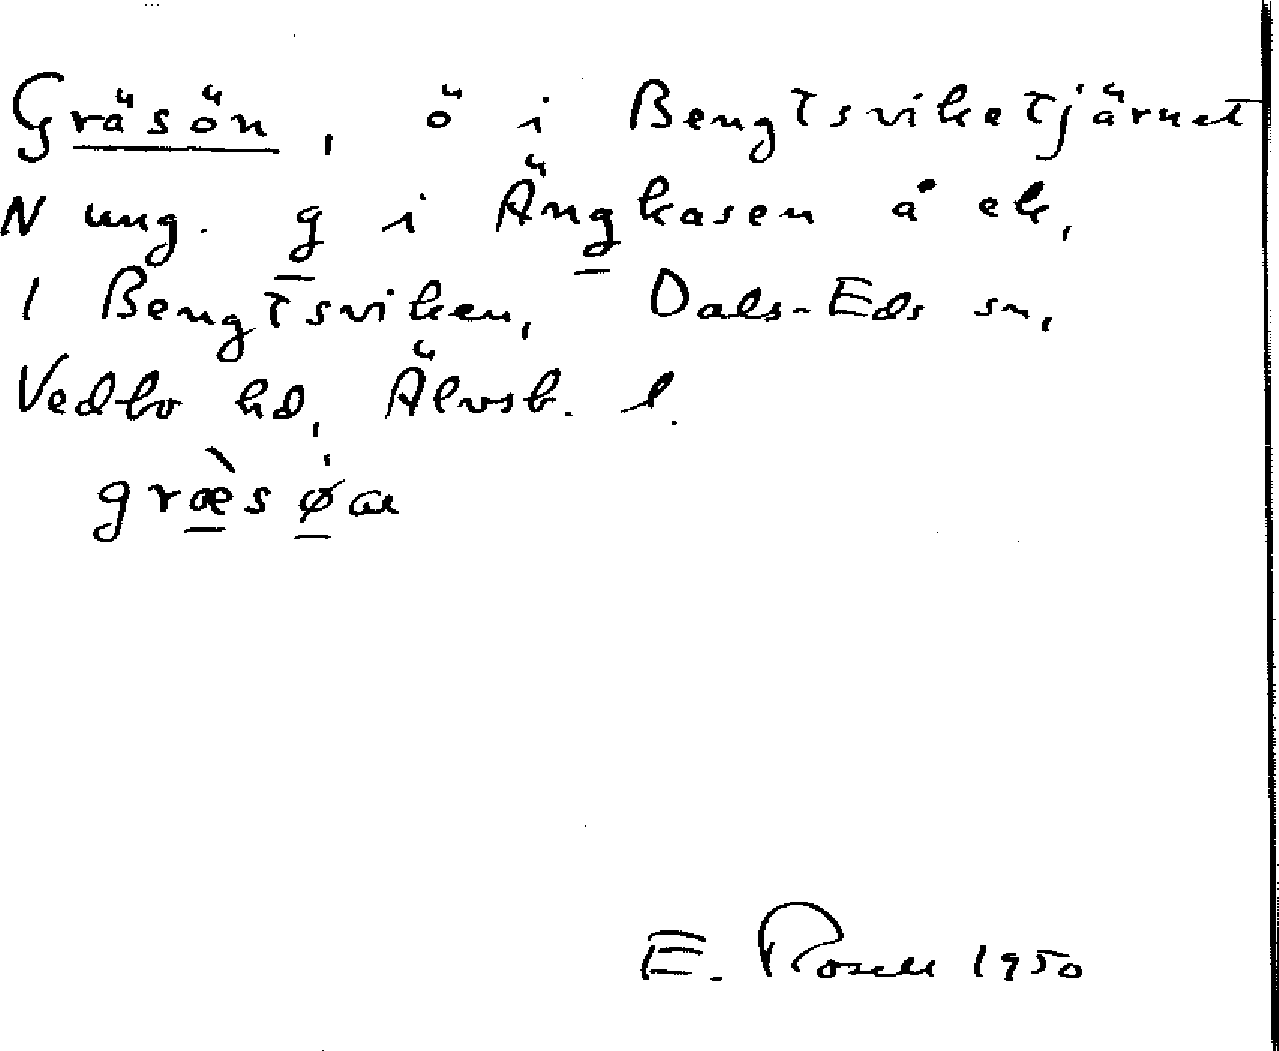 Gräsön, ö i Bengtsviketjärnet
N ung. g i Ängkasen å ek,
1 Bengtsviken, Dals-Eds sn,
Vedbo hd, Älvsb. l.
græ̀søa
E. Rosell 1950